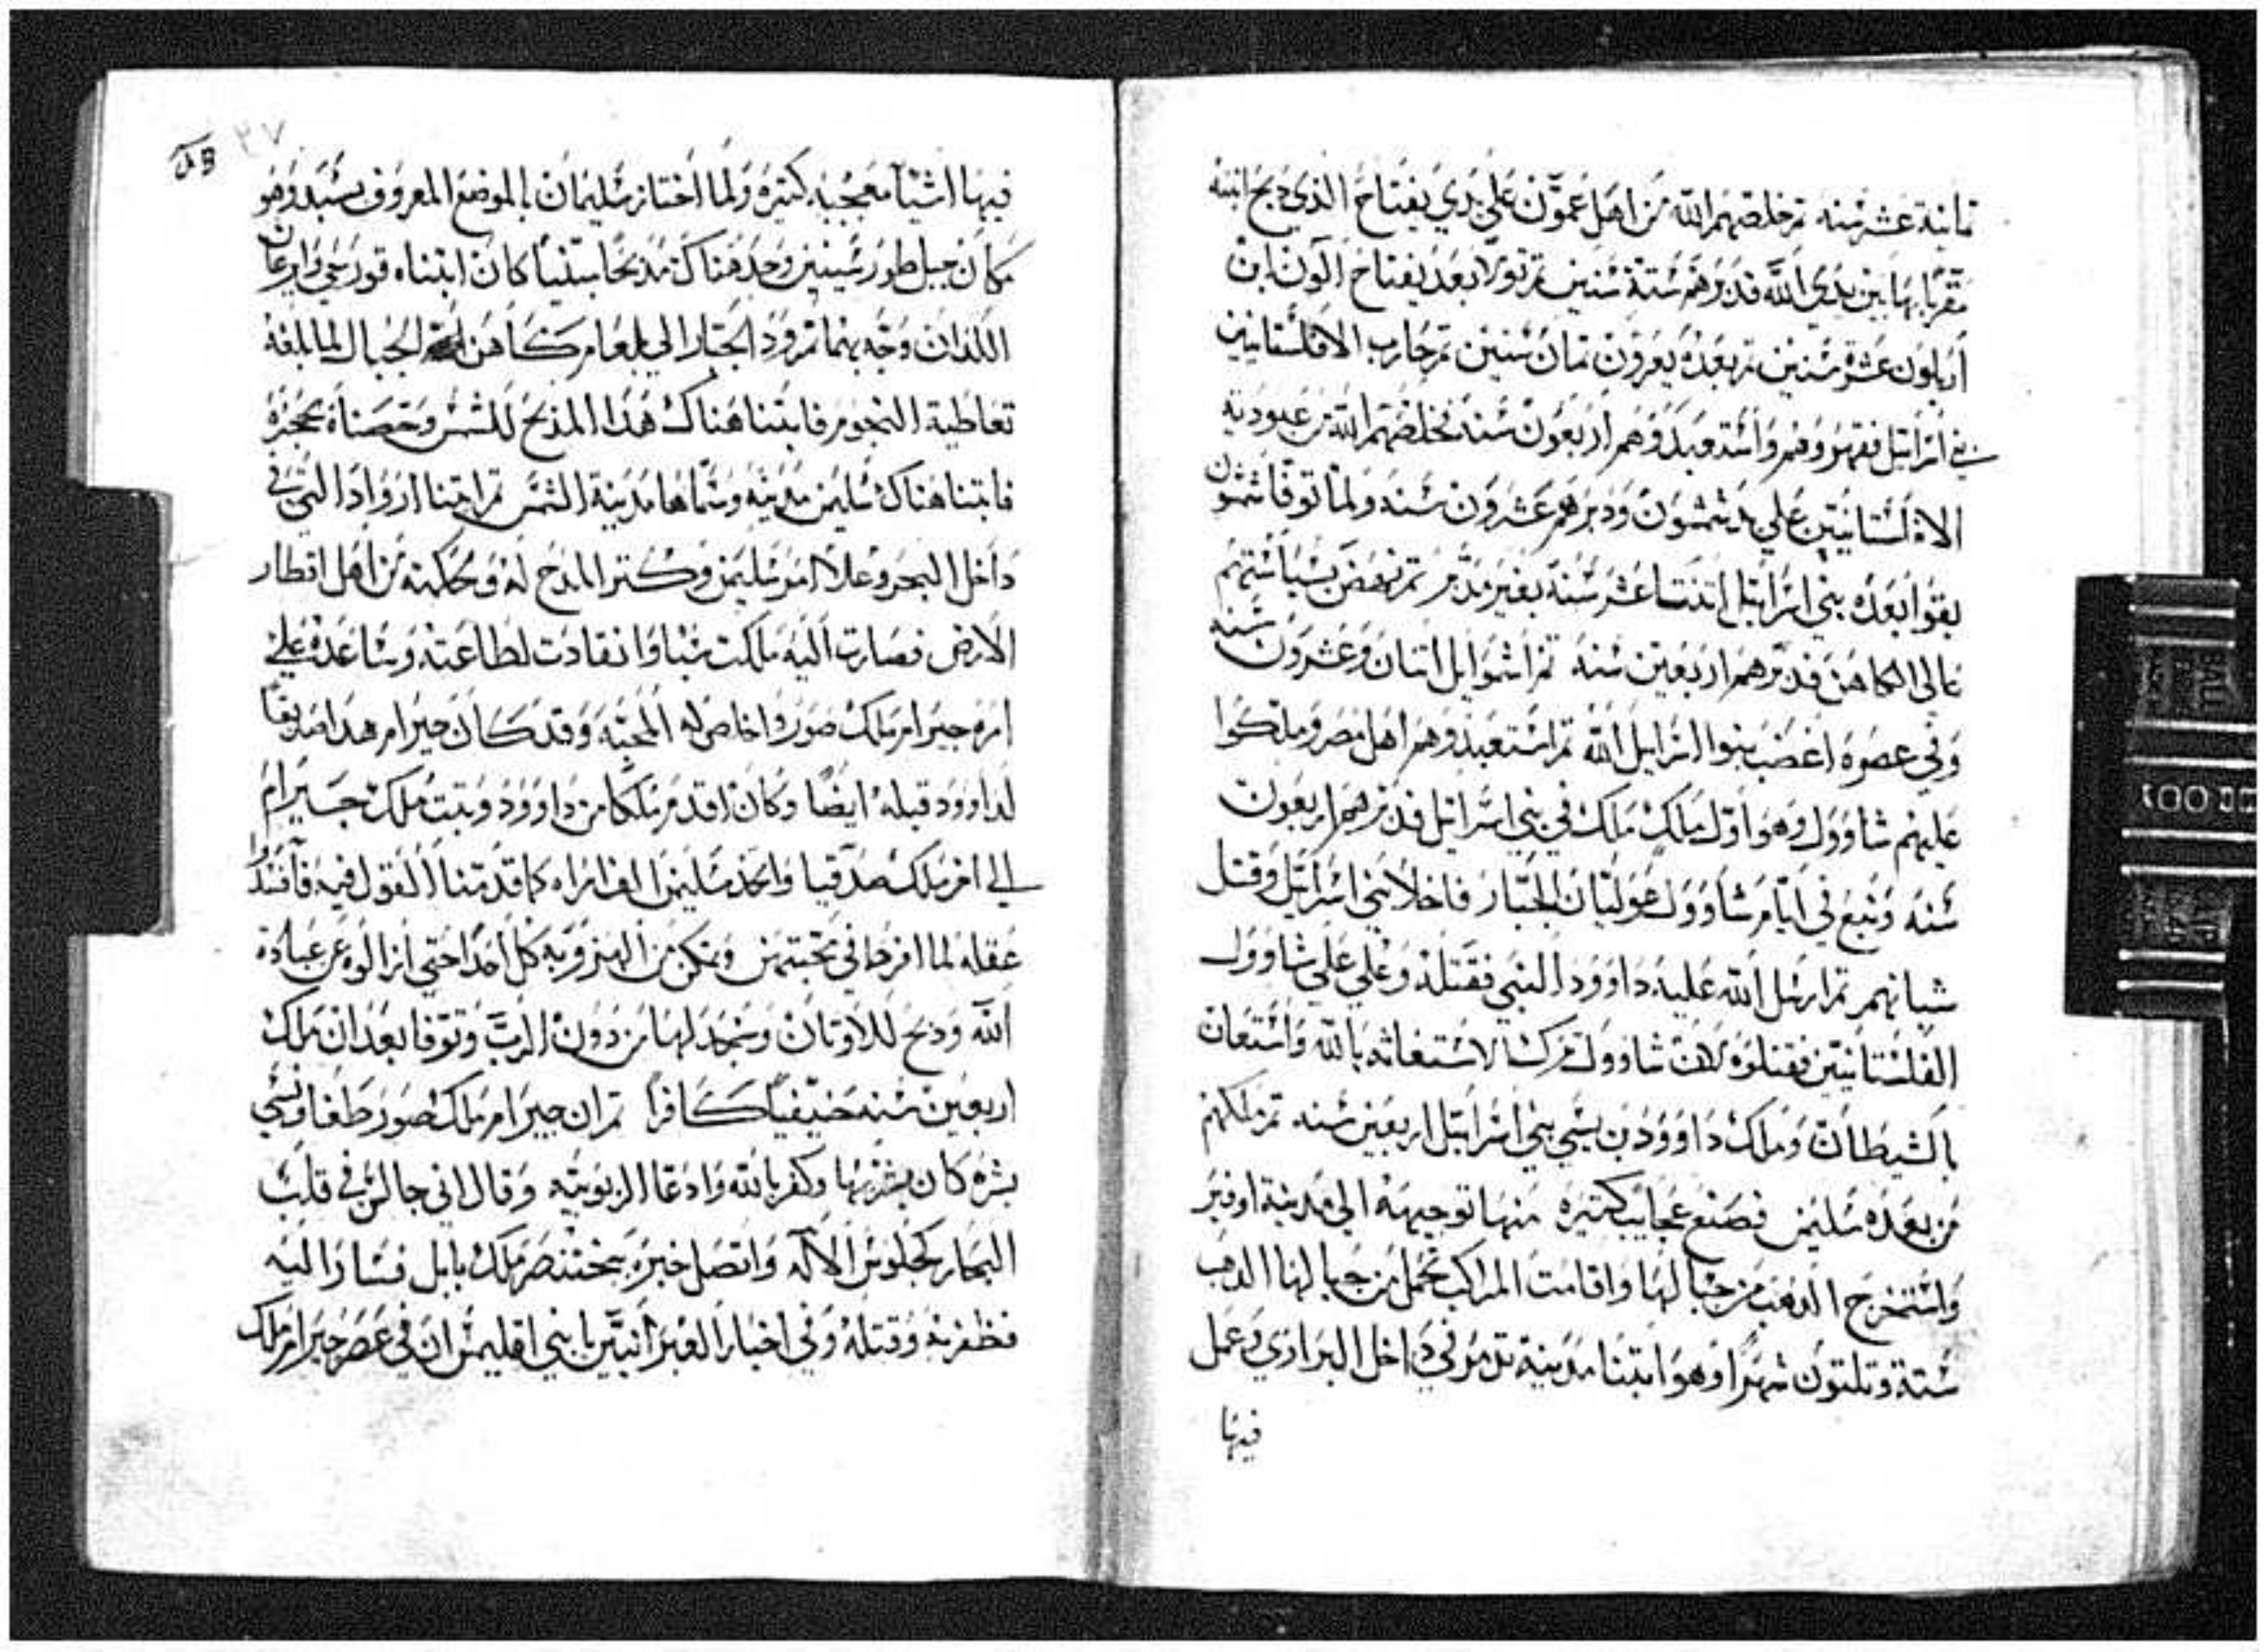 ثمانية عشر سنه ثم خلصهم الله من اهل عمون على يدي يفتاح الذي دبح ابنته
مقربا بها بين يدي الله فدبرهم ستة سنين ثم تولا بعد يفتاح الون ابن
ايلون عشرة سنين ثم بعده يعرون ثمان سنين ثم حارب الافلستانيين
بني اسرايل فقهروهم واستعبدوهم اربعون سنه فخلصهم الله من عبودية
الافلستانيين على يد شمشون ودبرهم عشرون سنه ولما توفا شمشون
بقوا بعده بني اسرايل اتنتا عشر سنه بغير مدبر ثم نهض بسياستهم
عالى الكاهن فدبرهم اربعين سنه ثم اشموايل اتنان وعشرون سنه
وفي عصره اغضب بنوا اسرايل الله ثم استعبدوهم اهل مصر وملكوا
عليهم شاوول وهو اول ملك ملك في بني اسرايل فدبرهم اربعون
سنه ونبع في ايام شاوول غوليان الجبار فاخلا بني اسرايل وقتل
شبانهم ثم ارسل الله عليه داوود النبي فقتله وغلي على شاوول
الفلستانيين فقتلوه لان شاوول ترك الاستغاثه بالله واستعان
بالشيطان وملك داوود بن يسي بني اسرايل اربعين سنه ثم ملكهم
من بعده سليمن فصنع عجايب كتيره منها توجيهه الي مدينة اوفير
واستخرج الدهب من جبالها واقامت المراكب تحمل من جبالها الدهب
ستة وتلتون شهرا وهو ابتنا مدينة تدمر في داخل البراري وعمل
فيها
٣٧
فيها اشيا معجبه كتيره ولما اختاز سليمان بالموضع المعروف بسند وهو
مكان جبل طور سينين وجد هناك مدبحا سنيا كان ابتناه قورسي وابرعان
اللذان وجه بهما نمرود الجبار الي بلعام كاهن الجبال لما بلغه
تعاطية النجوم فابتنا هناك هذا المذبح للشمس وحصناه بحجره
فابتنا هناك سليمن مدينه وسماها مدينة الشمس ثم ابتنا ارواد التي في
داخل البحر وعلا امر سليمن وكتر المدح له وحكمته من اهل اقطار
الارض فصارت اليه ملكت سبا وانقادت لطاعته وساعده علي
امره حيرام ملك صور واخاص له المحبه وقد كان حيرام هدا صديقا
لداوود قبله ايضا وكان اقدم ملكا من داوود وتبت ملك حيرام
الي اخر ملك صدقيا واتخد سليمن الف امراه كما قدمنا القول فيه فافسدوا
عقله لما افرط في محبتهن وتمكن من الهزو به كل احدا حتي ازالوه عن عبادة
الله ودبح للاوتان وسجد لها من دون الرب وتوفا بعد ان ملك
اربعين سنه حنيفيا كافرا ثم ان حيرام ملك صور طغا ونسي
بشره كان بشر بها وكفر بالله وادعا الربوبيه وقال اني جالس في قلب
البحار كجلوس الاله واتصل خبره ببختنصر ملك بابل فسار اليه
فظفر به وقتله وفي اخبار العبرانيين يابني اقليمس ان في عصر حيرام ملك